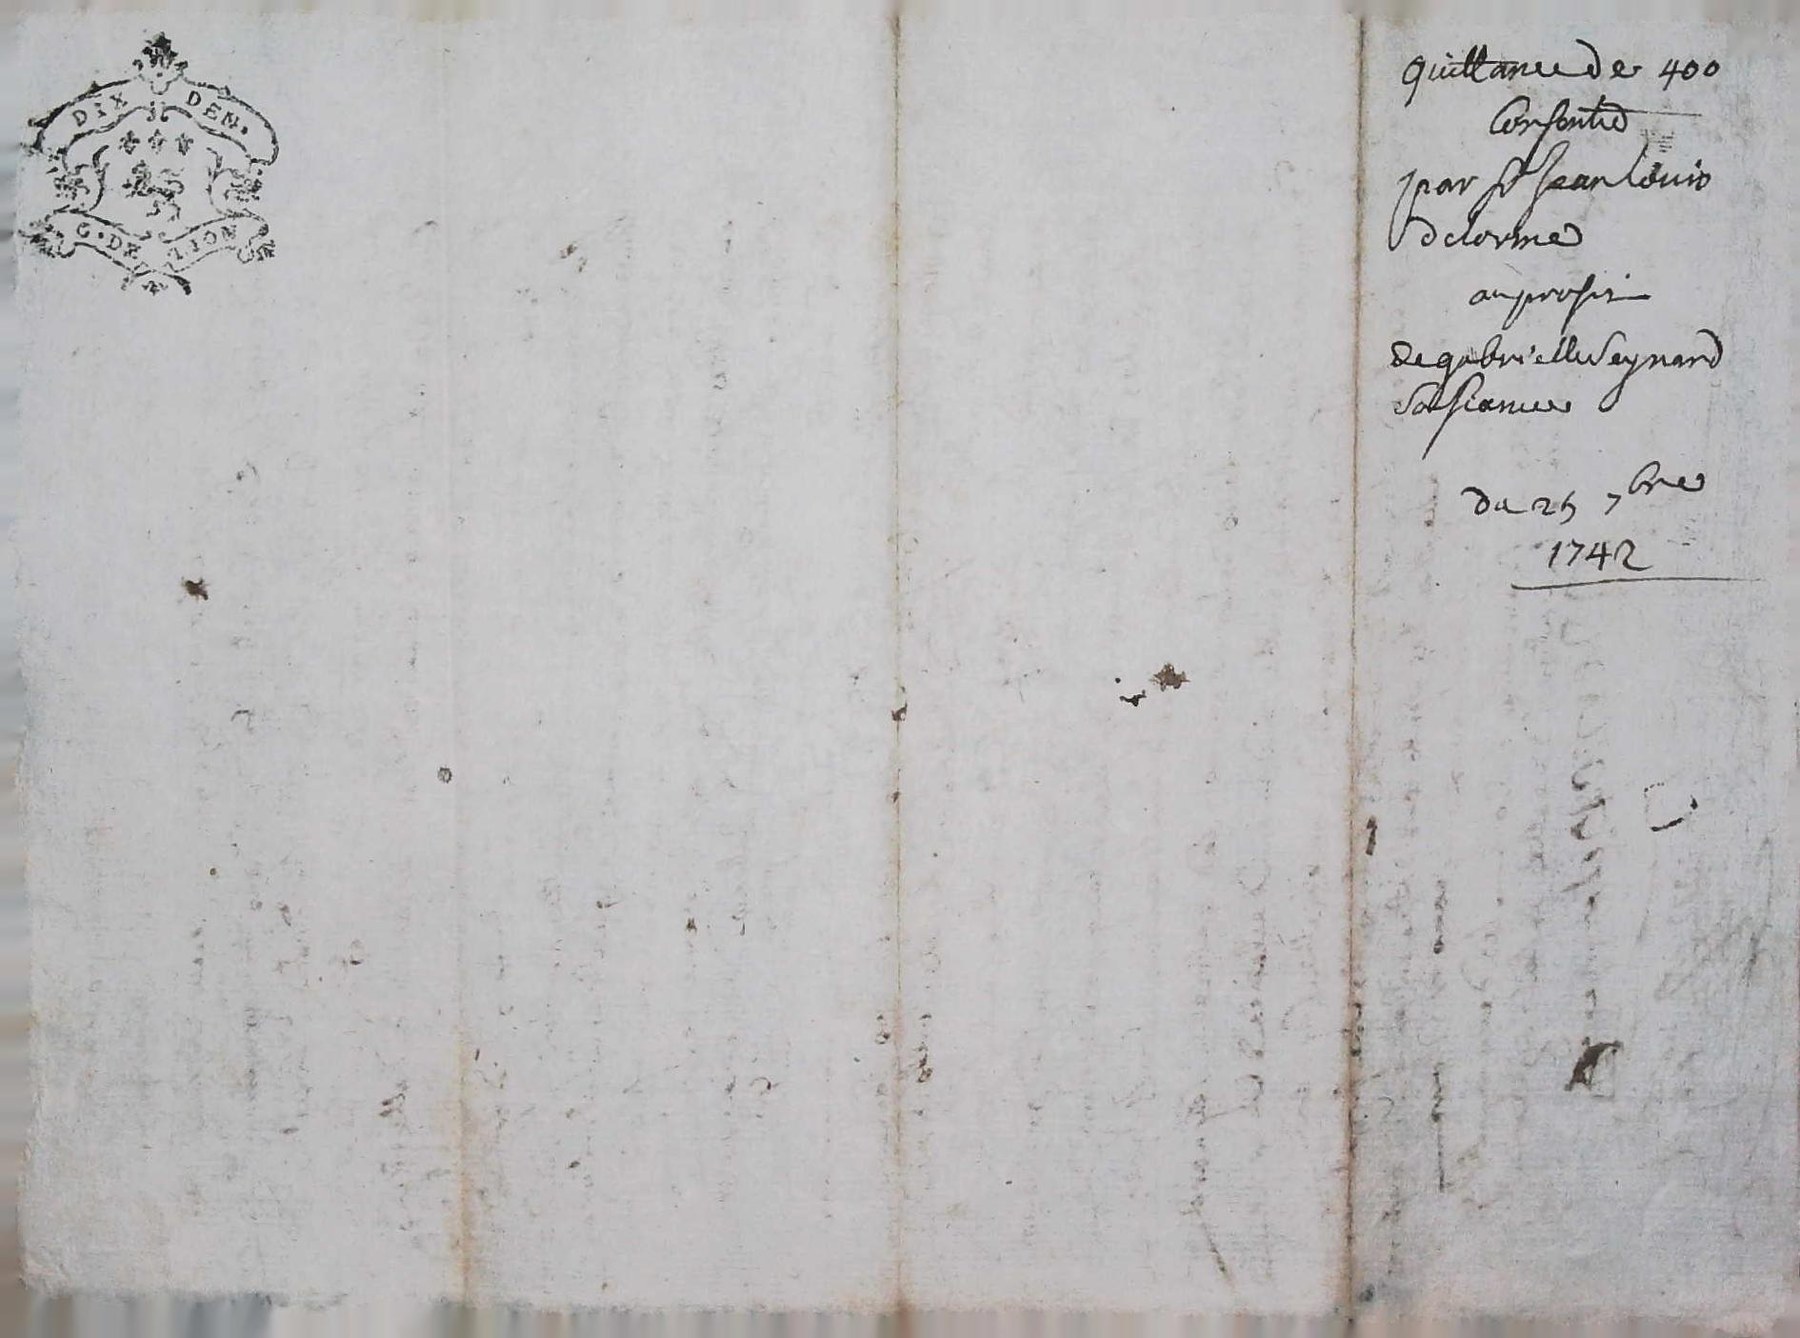 DIX DEN.
G. DE LION
quittance de 400
Consentie
par Sr Jean Louis
delorme
au profit
de gabrielle Seynard
Sa fiancee
du 25 7bre
1742